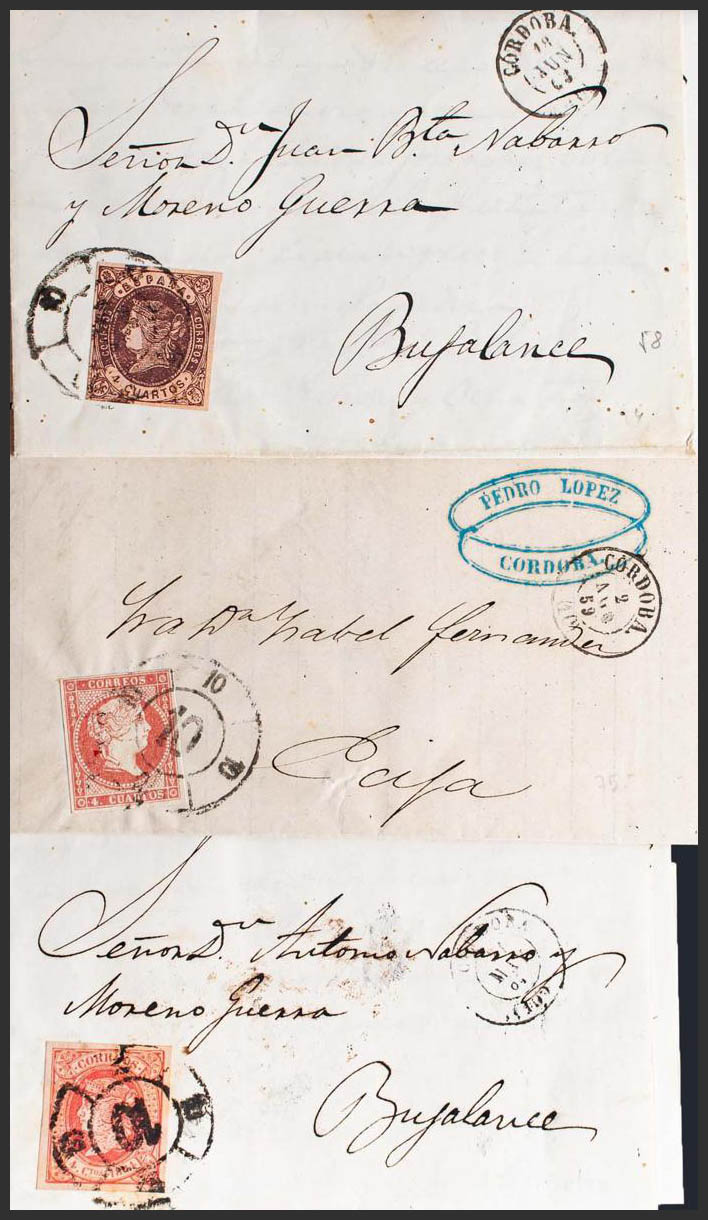 CÓRDOBA.
18
JUN
63
Señor Dn Juan Bta Nabarro
y Moreno Guerra
ESPAÑA
CORREOS
4 CUARTOS
10
Bujalance
58
PEDRO LOPEZ
CORDOBA.
CÓRDOBA.
2
AGO
59
Sra Da Ysabel fernandez
CORREOS
4 CUARTOS
10
10
10
Ecija
75
Señor Dn Antonio Nabarro y
Moreno Guerra
CORREOS
10
Bujalance